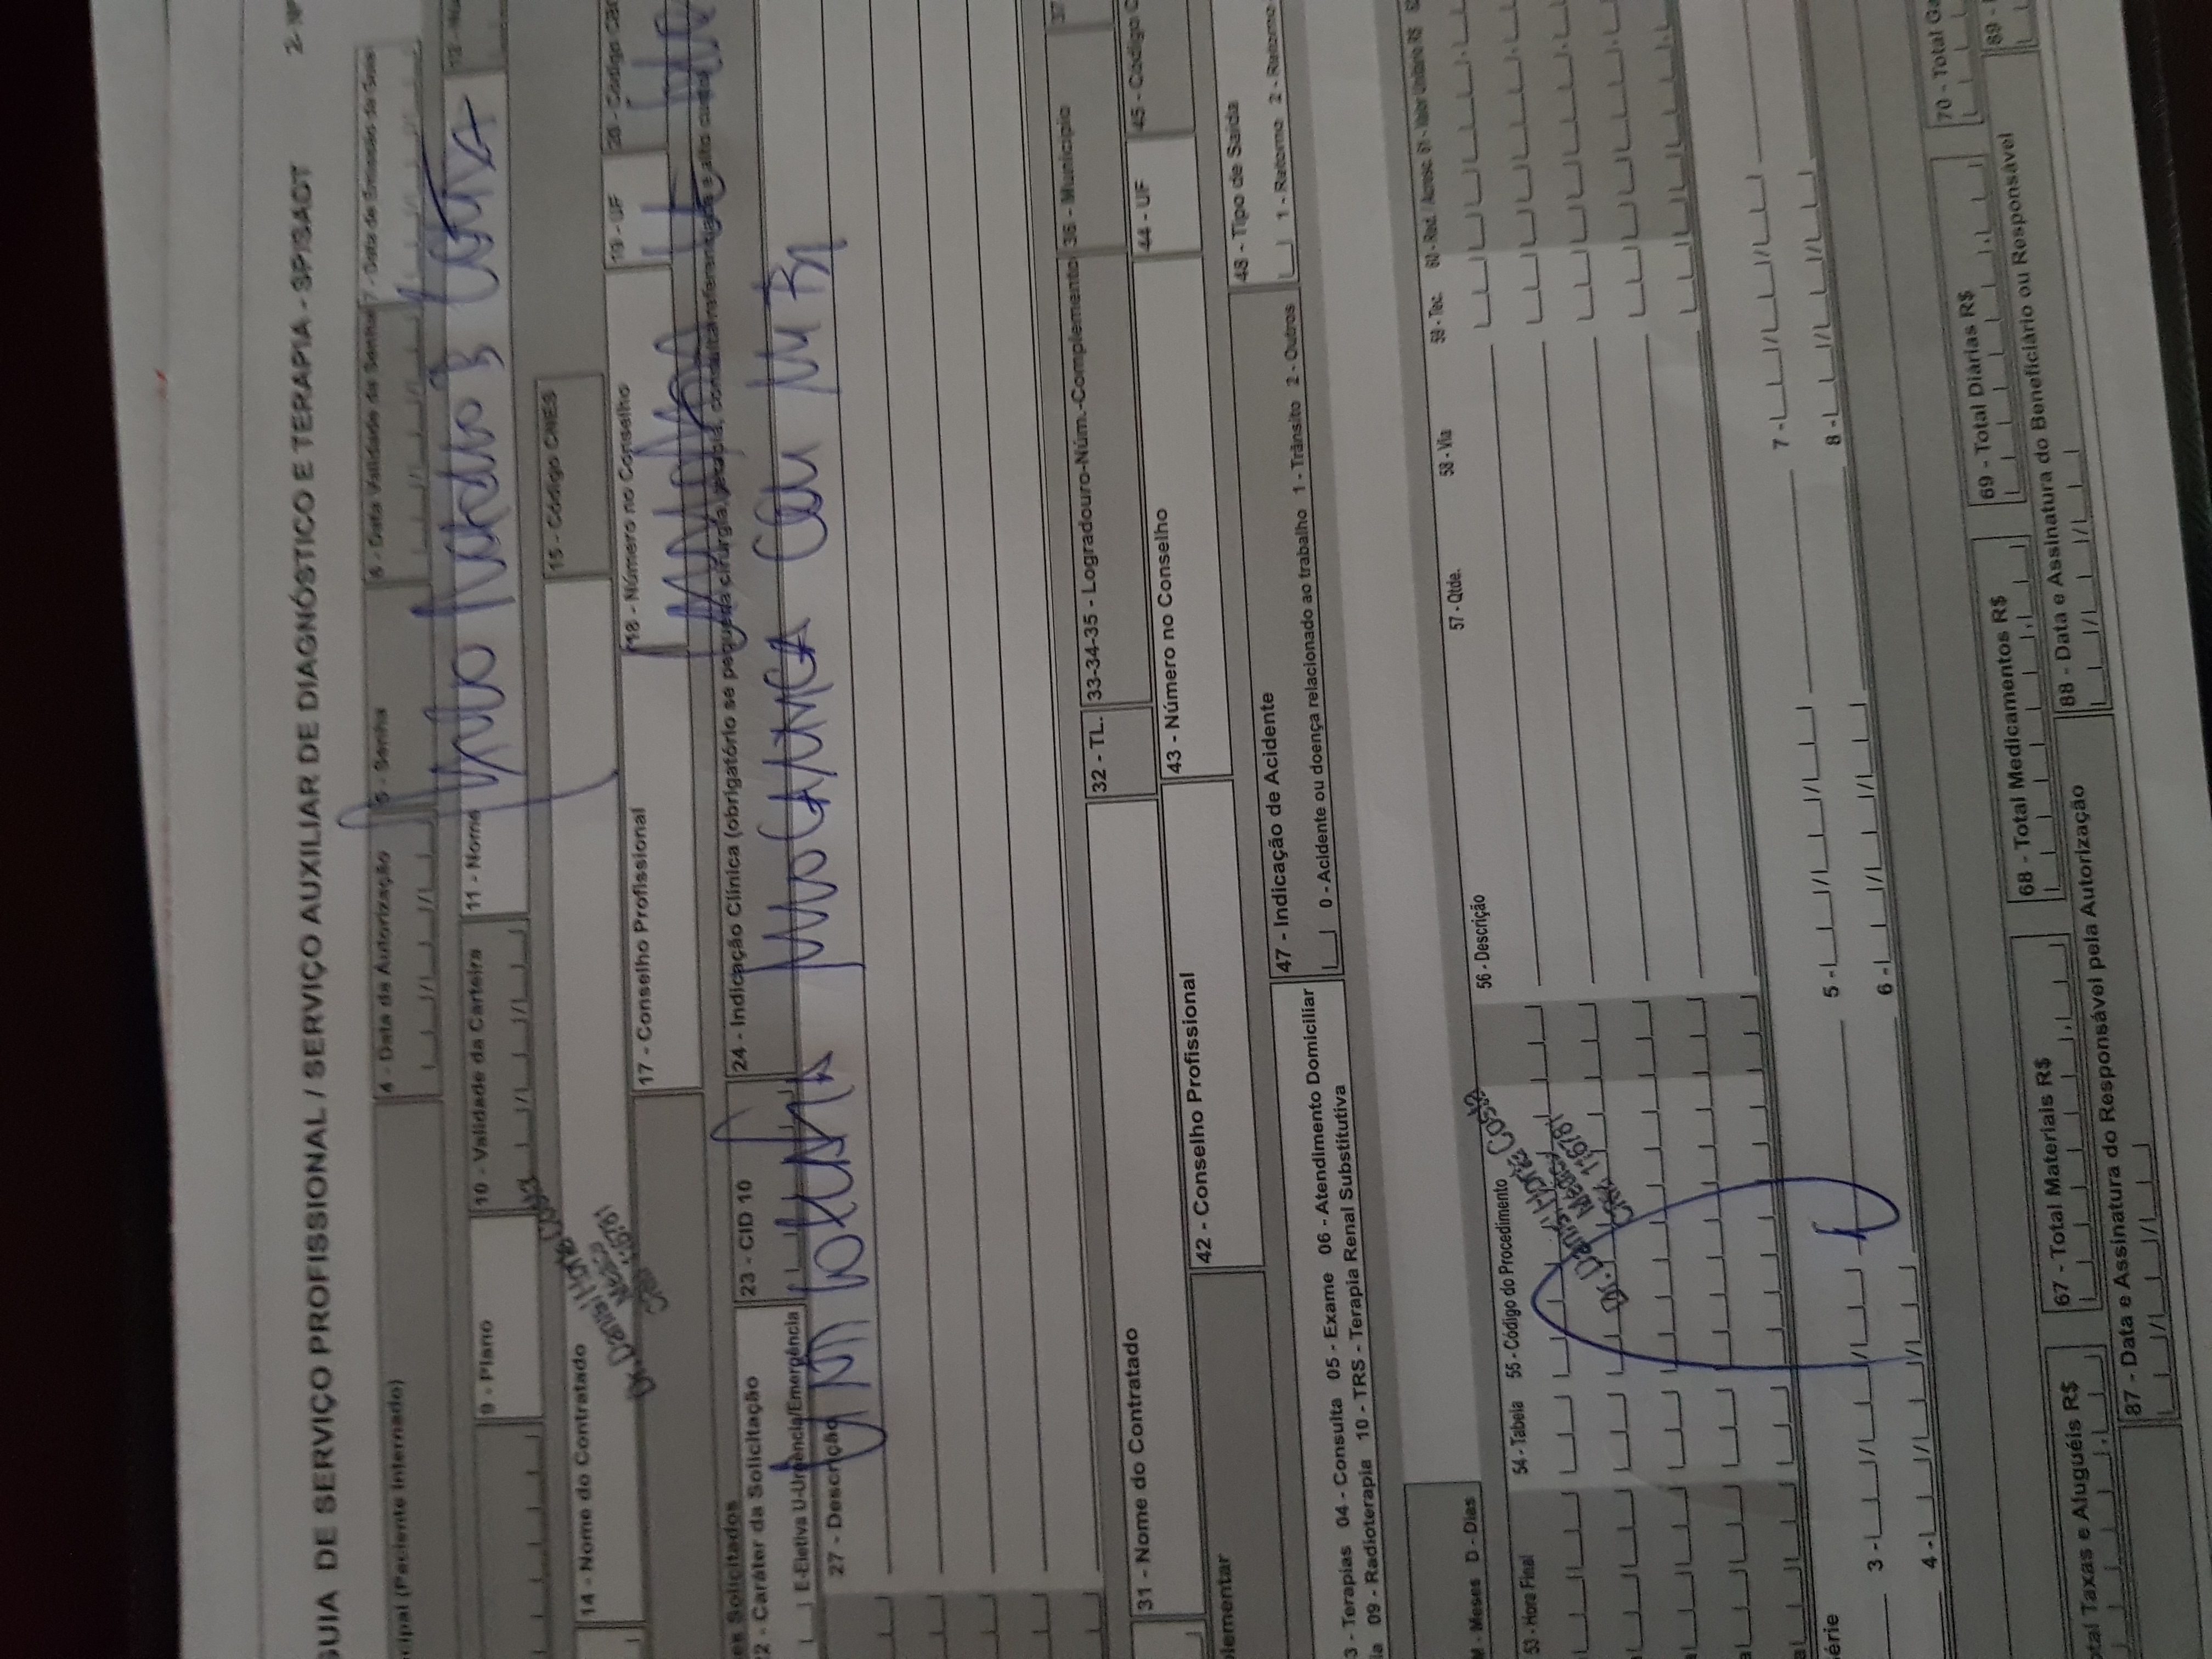 GUIA DE SERVIÇO PROFISSIONAL / SERVIÇO AUXILIAR DE DIAGNÓSTICO E TERAPIA - SP/SADT
2- Nº
cipal (Paciente Internado)
4 - Data da Autorização
5 - Senha
6 - Data Validade da Senha
7 - Data de Emissão da Guia
9 - Plano
10 - Validade da Carteira
11 - Nome
14 - Nome do Contratado
15 - Código CNES
Dr. Daniel Horta Costa
Médico
CRM 116781
17 - Conselho Profissional
18 - Número no Conselho
19 - UF
20 - Código CBO
es Solicitados
22 - Caráter da Solicitação
23 - CID 10
24 - Indicação Clínica (obrigatório se pequena cirurgia, terapia, consulta referenciada e alto custo)
E-Eletiva U-Urgência/Emergência
27 - Descrição
31 - Nome do Contratado
32 - TL.
33-34-35 - Logradouro-Núm.-Complemento
36 - Município
37
lementar
42 - Conselho Profissional
43 - Número no Conselho
44 - UF
45 - Código C
47 - Indicação de Acidente
0 - Acidente ou doença relacionado ao trabalho 1 - Trânsito 2 - Outros
48 - Tipo de Saída
1 - Retorno 2 - Retorno
3 - Terapias 04 - Consulta 05 - Exame 06 - Atendimento Domiciliar
ia 09 - Radioterapia 10 - TRS - Terapia Renal Substitutiva
M - Meses D - Dias
53 - Hora Final
54 - Tabela
55 - Código do Procedimento
56 - Descrição
57 - Qtde.
58 - Via
59 - Tec.
60 - Red. / Acresc.
61 - Valor Unitário R$
Dr. Daniel Horta Costa
Médico
CRM 116781
érie
3 -
4 -
5 -
6 -
7 -
8 -
otal Taxas e Aluguéis R$
67 - Total Materiais R$
68 - Total Medicamentos R$
69 - Total Diárias R$
70 - Total Ga
87 - Data e Assinatura do Responsável pela Autorização
88 - Data e Assinatura do Beneficiário ou Responsável
89 -